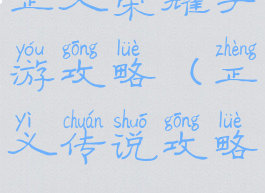 正义荣耀手
yóu gōng lüè zhèng
游攻略(正
yì chuán shuō gōng lüè
义传说攻略